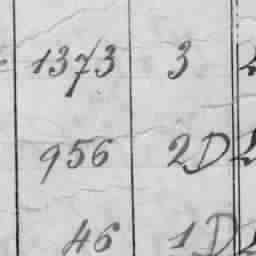 1373 3
956 2D
46 1D